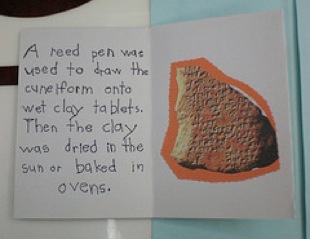 A reed pen was
used to draw the
cuneiform onto
wet clay tablets.
Then the clay
was dried in the
sun or baked in
ovens.